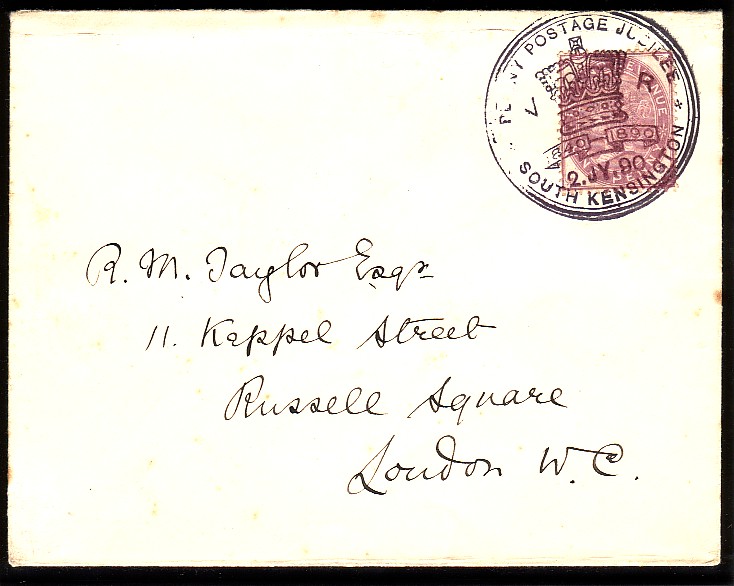 PENNY POSTAGE JUBILEE
V R
1840 1890
2.JY.90
SOUTH KENSINGTON
R. M. Taylor Esqr
11. Keppel Street
Russell Square
London W.C.